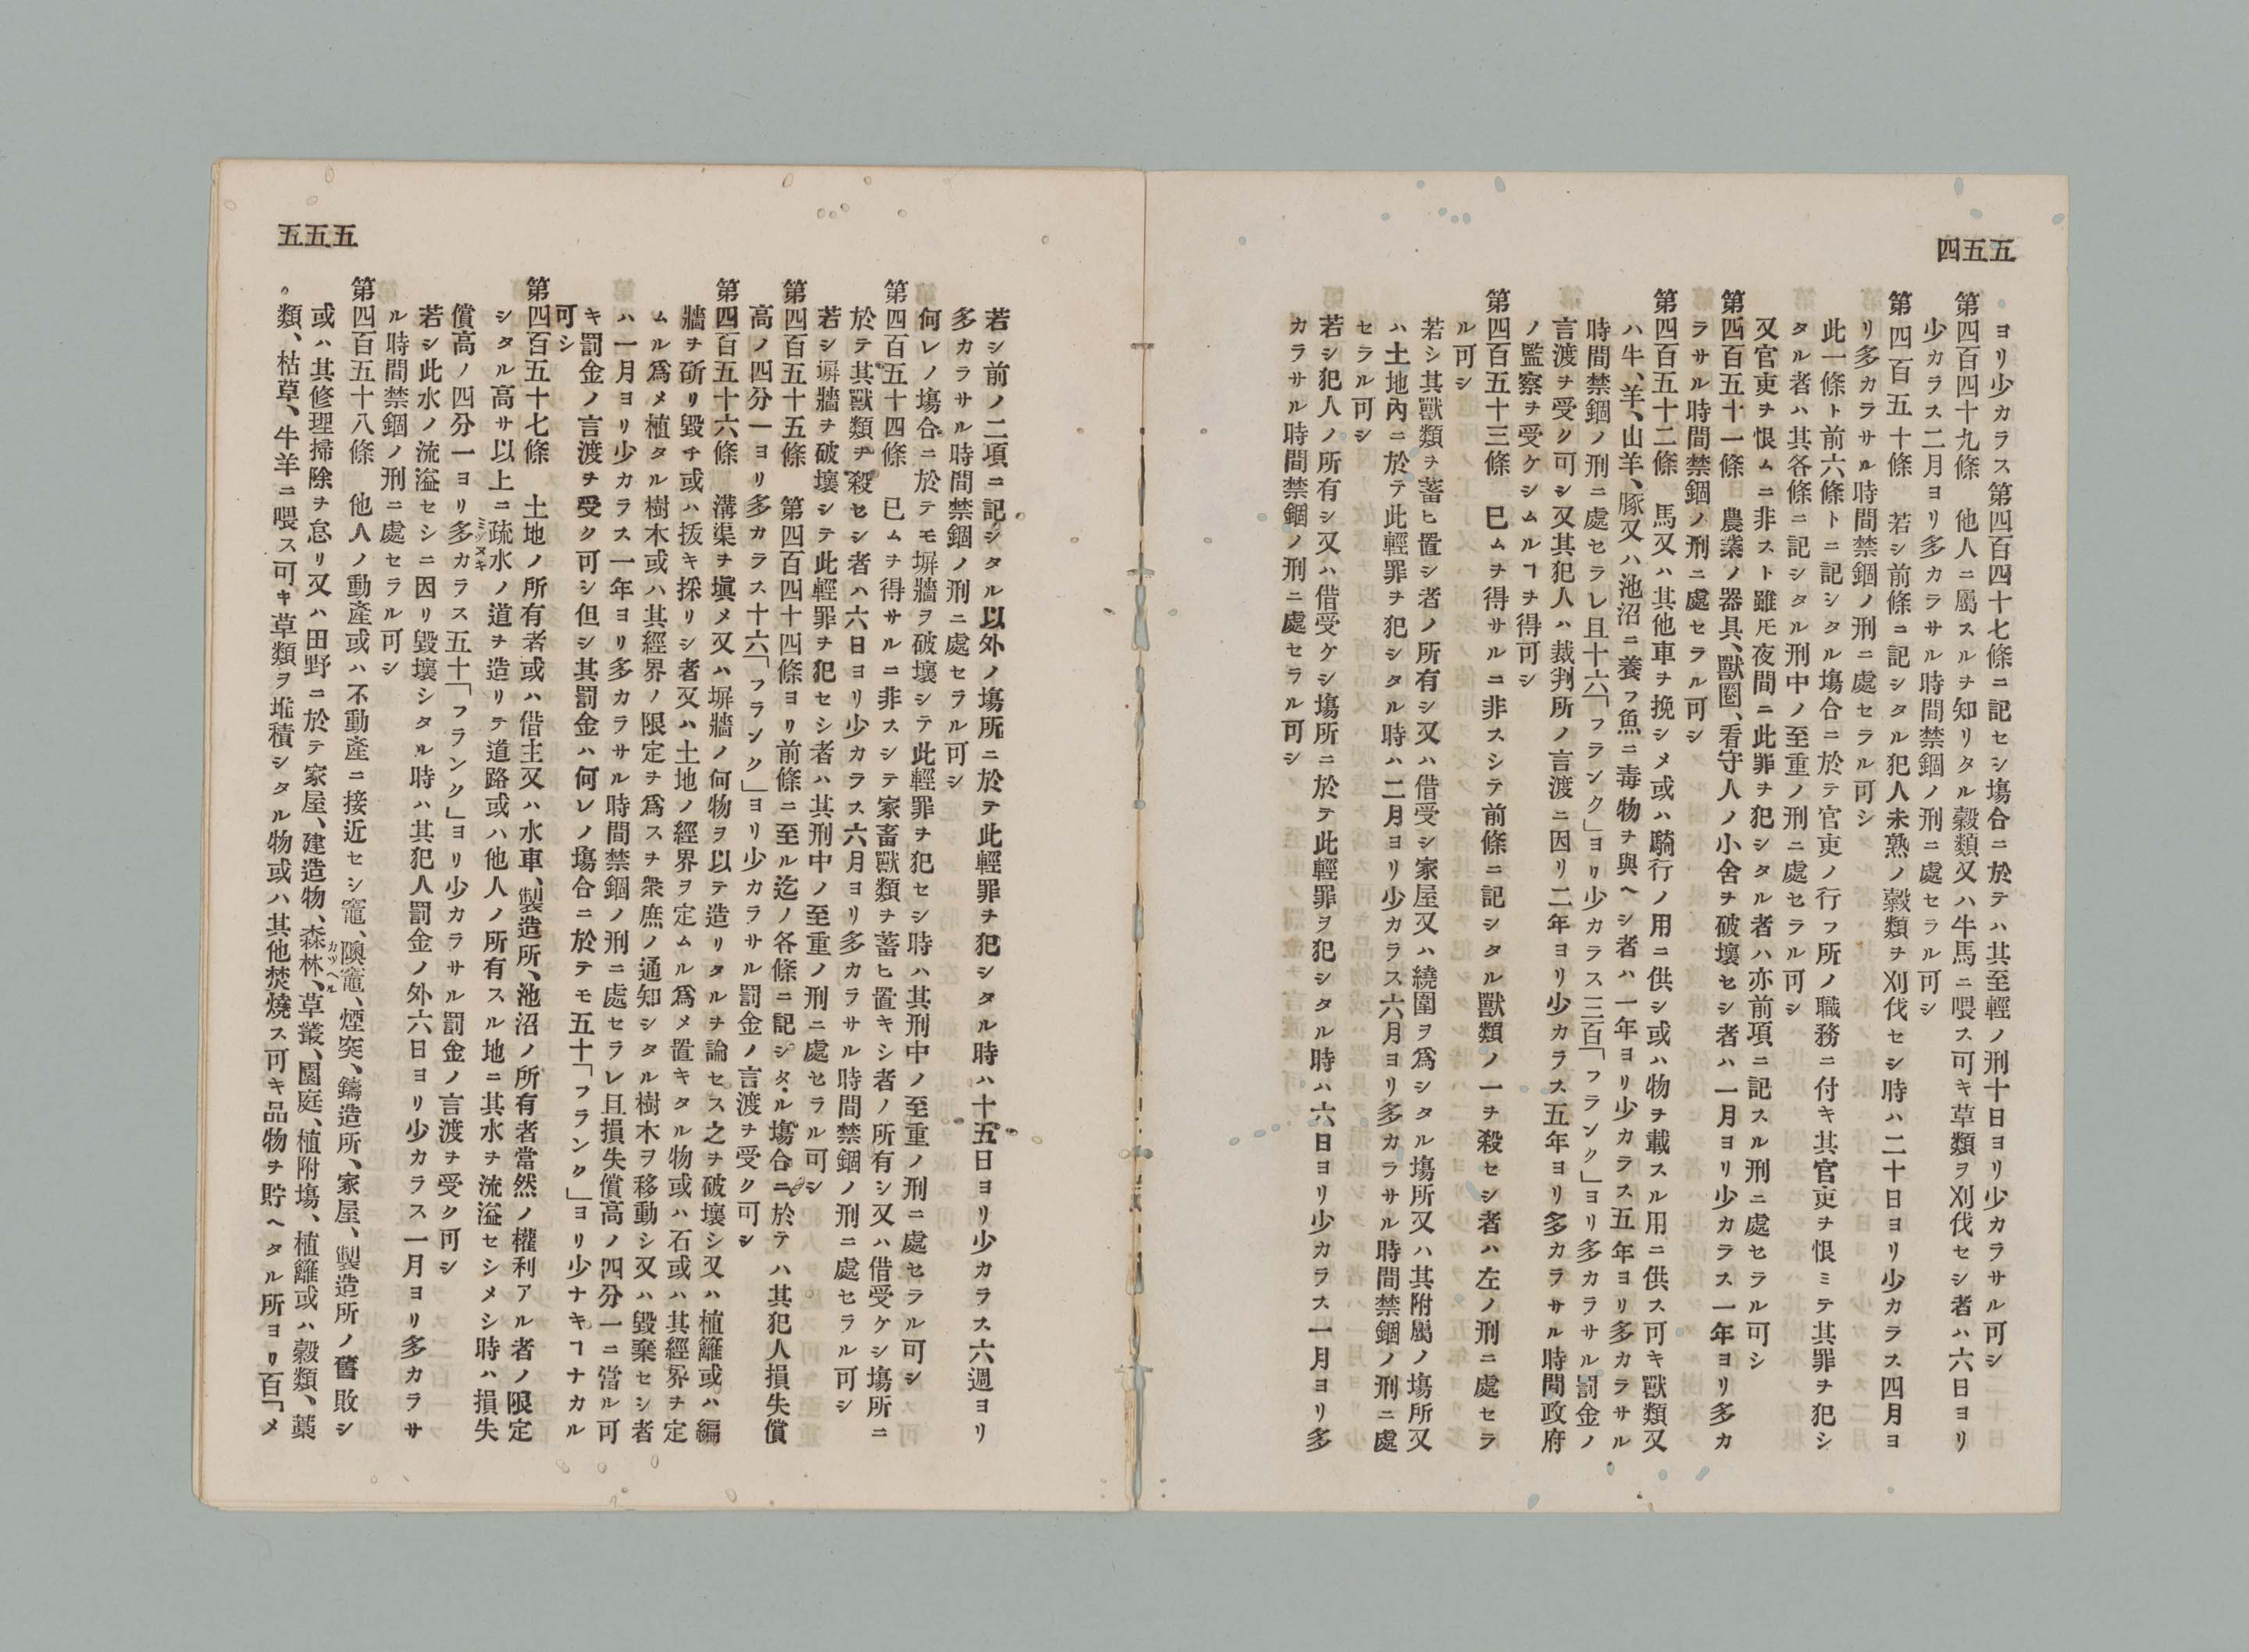 五五四
ヨリ少カラス第四百四十七條ニ記セシ塲合ニ於テハ其至輕ノ刑十日ヨリ少カラサル可シ
第四百四十九條　他人ニ屬スルヿヲ知リタル穀類又ハ牛馬ニ喂ス可キ草類ヲ刈伐セシ者ハ六日ヨリ
少カラス二月ヨリ多カラサル時間禁錮ノ刑ニ處セラル可シ
第四百五十條　若シ前條ニ記シタル犯人未熟ノ穀類ヲ刈伐セシ時ハ二十日ヨリ少カラス四月ヨ
リ多カラサル時間禁錮ノ刑ニ處セラル可シ
此一條ト前六條トニ記シタル塲合ニ於テ官吏ノ行フ所ノ職務ニ付キ其官吏ヲ恨ミテ其罪ヲ犯シ
タル者ハ其各條ニ記シタル刑中ノ至重ノ刑ニ處セラル可シ
又官吏ヲ恨ムニ非スト雖𪜈夜間ニ此罪ヲ犯シタル者ハ亦前項ニ記スル刑ニ處セラル可シ
第四百五十一條　農業ノ器具、獸圈、看守人ノ小舍ヲ破壞セシ者ハ一月ヨリ少カラス一年ヨリ多カ
ラサル時間禁錮ノ刑ニ處セラル可シ
第四百五十二條　馬又ハ其他車ヲ挽シメ或ハ騎行ノ用ニ供シ或ハ物ヲ載スル用ニ供ス可キ獸類又
ハ牛、羊、山羊、豚又ハ池沼ニ養フ魚ニ毒物ヲ與ヘシ者ハ一年ヨリ少カラス五年ヨリ多カラサル
時間禁錮ノ刑ニ處セラレ且十六「フランク」ヨリ少カラス三百「フランク」ヨリ多カラサル罰金ノ
言渡ヲ受ク可シ又其犯人ハ裁判所ノ言渡ニ因リ二年ヨリ少カラス五年ヨリ多カラサル時間政府
ノ監察ヲ受ケシムルヿヲ得可シ
第四百五十三條　已ムヲ得サルニ非スシテ前條ニ記シタル獸類ノ一ヲ殺セシ者ハ左ノ刑ニ處セラ
ル可シ
若シ其獸類ヲ蓄ヒ置シ者ノ所有シ又ハ借受シ家屋又ハ繞圍ヲ爲シタル塲所又ハ其附屬ノ塲所又
ハ土地內ニ於テ此輕罪ヲ犯シタル時ハ二月ヨリ少カラス六月ヨリ多カラサル時間禁錮ノ刑ニ處
セラル可シ
若シ犯人ノ所有シ又ハ借受ケシ塲所ニ於テ此輕罪ヲ犯シタル時ハ六日ヨリ少カラス一月ヨリ多
カラサル時間禁錮ノ刑ニ處セラル可シ
五五五
若シ前ノ二項ニ記シタル以外ノ塲所ニ於テ此輕罪ヲ犯シタル時ハ十五日ヨリ少カラス六週ヨリ
多カラサル時間禁錮ノ刑ニ處セラル可シ
何レノ塲合ニ於テモ塀牆ヲ破壞シテ此輕罪ヲ犯セシ時ハ其刑中ノ至重ノ刑ニ處セラル可シ
第四百五十四條　已ムヲ得サルニ非スシテ家畜獸類ヲ蓄ヒ置キシ者ノ所有シ又ハ借受ケシ塲所ニ
於テ其獸類ヲ殺セシ者ハ六日ヨリ少カラス六月ヨリ多カラサル時間禁錮ノ刑ニ處セラル可シ
若シ塀牆ヲ破壞シテ此輕罪ヲ犯セシ者ハ其刑中ノ至重ノ刑ニ處セラル可シ
第四百五十五條　第四百四十四條ヨリ前條ニ至ル迄ノ各條ニ記シタル塲合ニ於テハ其犯人損失償
高ノ四分一ヨリ多カラス十六「フランク」ヨリ少カラサル罰金ノ言渡ヲ受ク可シ
第四百五十六條　溝渠ヲ塡メ又ハ塀牆ノ何物ヲ以テ造リタルヲ論セス之ヲ破壞シ又ハ植籬或ハ編
牆ヲ斫リ毀チ或ハ拔キ採リシ者又ハ土地ノ經界ヲ定ムル爲メ置キタル物或ハ石或ハ其經界ヲ定
ムル爲メ植タル樹木或ハ其經界ノ限定ヲ爲スヿヲ衆庶ノ通知シタル樹木ヲ移動シ又ハ毀棄セシ者
ハ一月ヨリ少カラス一年ヨリ多カラサル時間禁錮ノ刑ニ處セラレ且損失償高ノ四分一ニ當ル可
キ罰金ノ言渡ヲ受ク可シ但シ其罰金ハ何レノ塲合ニ於テモ五十「フランク」ヨリ少ナキヿナカル
可シ
第四百五十七條　土地ノ所有者或ハ借主又ハ水車、製造所、池沼ノ所有者當然ノ權利アル者ノ限定
シタル高サ以上ニ疏水ノ道ヲ造リテ道路或ハ他人ノ所有スル地ニ其水ヲ流溢セシメシ時ハ損失
ミヅヌキ
償高ノ四分一ヨリ多カラス五十「フランク」ヨリ少カラサル罰金ノ言渡ヲ受ク可シ
若シ此水ノ流溢セシニ因リ毀壞シタル時ハ其犯人罰金ノ外六日ヨリ少カラス一月ヨリ多カラサ
ル時間禁錮ノ刑ニ處セラル可シ
第四百五十八條　他人ノ動產或ハ不動產ニ接近セシ竈、隩竈、煙突、鑄造所、家屋、製造所ノ舊敗シ
或ハ其修理掃除ヲ怠リ又ハ田野ニ於テ家屋、建造物、森林、草叢、園庭、植附塲、植籬或ハ穀類、藁
類、枯草、牛羊ニ喂ス可キ草類ヲ堆積シタル物或ハ其他焚燒ス可キ品物ヲ貯ヘタル所ヨリ百「メ